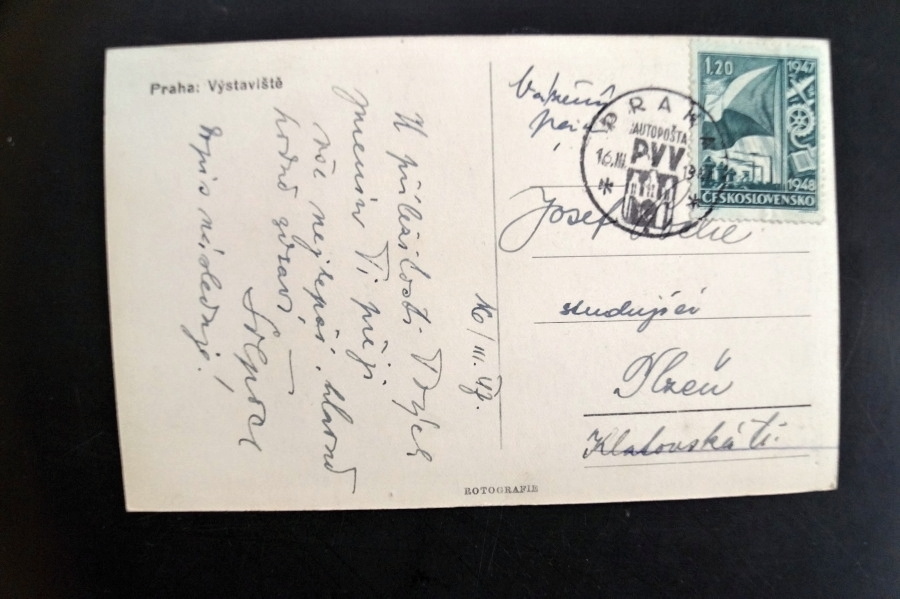 Praha: Výstaviště
K příležitosti Tvých
jmenin Ti přeji
vše nejlepší, hlavně
hodně zdraví
Dopis následuje!
16/III. 47.
Vážený
pan
Josef
studující
Plzeň
Klatovská tř.
PRAHA
AUTOPOŠTA
16.III.
PVV
1,20
1947
1948
ČESKOSLOVENSKO
ROTOGRAFIE